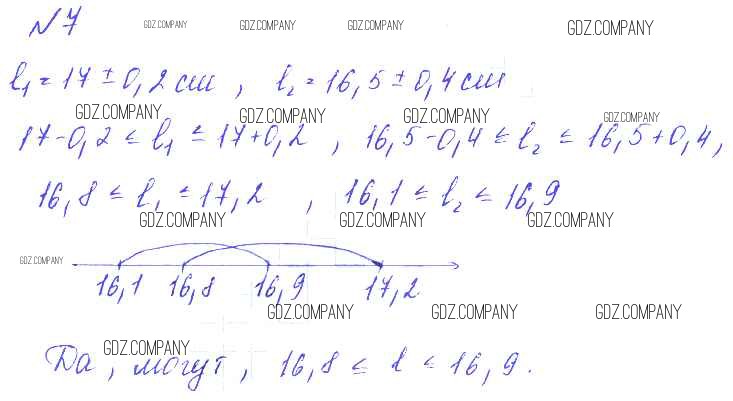 №7 GDZ.COMPANY GDZ.COMPANY GDZ.COMPANY GDZ.COMPANY
l₁ = 17 ± 0,2 см , l₂ = 16,5 ± 0,4 см
GDZ.COMPANY GDZ.COMPANY GDZ.COMPANY GDZ.COMPANY
17-0,2 ≤ l₁ ≤ 17+0,2 , 16,5-0,4 ≤ l₂ ≤ 16,5+0,4,
16,8 ≤ l₁ ≤ 17,2 , 16,1 ≤ l₂ ≤ 16,9
GDZ.COMPANY GDZ.COMPANY GDZ.COMPANY
GDZ.COMPANY
16,1 16,8 16,9 17,2
GDZ.COMPANY GDZ.COMPANY GDZ.COMPANY
GDZ.COMPANY
Да, могут, 16,8 ≤ l ≤ 16,9.